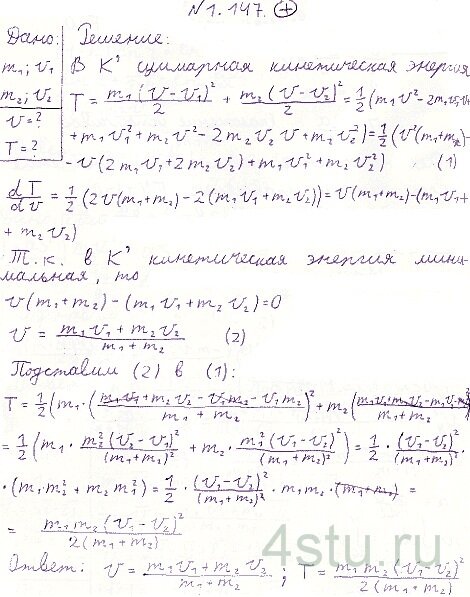 N 1.147. (+)
Дано: Решение:
m₁; v₁ В K' суммарная кинетическая энергия
m₂; v₂ T = m₁(v-v₁)²/2 + m₂(v-v₂)²/2 = 1/2 (m₁v² - 2m₁v₁v +
v = ? + m₁v₁² + m₂v² - 2m₂v₂v + m₂v₂²) = 1/2 (v²(m₁+m₂) -
T = ? - v(2m₁v₁ + 2m₂v₂) + m₁v₁² + m₂v₂²) (1)
dT/dv = 1/2 (2v(m₁+m₂) - 2(m₁v₁+m₂v₂)) = v(m₁+m₂) - (m₁v₁ +
+ m₂v₂)
Т.к. в K' кинетическая энергия мини-
мальная, то
v(m₁+m₂) - (m₁v₁ + m₂v₂) = 0
v = (m₁v₁ + m₂v₂)/(m₁+m₂) (2)
Подставим (2) в (1):
T = 1/2 (m₁·((m₁v₁ + m₂v₂ - v₁m₁ - v₁m₂)/(m₁+m₂))² + m₂((m₁v₁+m₂v₂-m₁v₂-m₂v₂)/(m₁+m₂))²)
= 1/2 (m₁ · m₂²(v₂-v₁)²/(m₁+m₂)² + m₂ · m₁²(v₁-v₂)²/(m₁+m₂)²) = 1/2 · (v₁-v₂)²/(m₁+m₂)² ·
· (m₁m₂² + m₂m₁²) = 1/2 · (v₁-v₂)²/(m₁+m₂)² · m₁m₂ · (m₁+m₂) =
= m₁m₂(v₁-v₂)²/2(m₁+m₂)
Ответ: v = (m₁v₁ + m₂v₂)/(m₁+m₂); T = m₁m₂(v₁-v₂)²/2(m₁+m₂)
4stu.ru